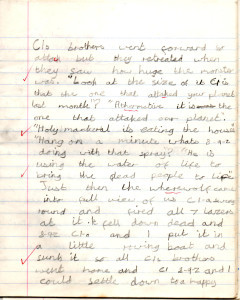 C10 brothers went forward to
attack but they retreated when
they saw how huge the monster
was. "Look at the size of it C10 is
that the one that attaked your planet
last month"? "Affirmative it is the
one that attaked our planet".
"Holy mackeral its eating the house
"Hang on a minute whats 8-92
doing with that spray?" "He is
using the water of life to
bring the dead people to life
Just then the wherewolf came
into full view of us C1 swung
round and fired all 7 lazers
at it. it fell down dead and
8-92 C10 and I put it in
a little rowing boat and
sunk it so all C10s brothers
went home and C1 8-92 and I
could settle down to happy